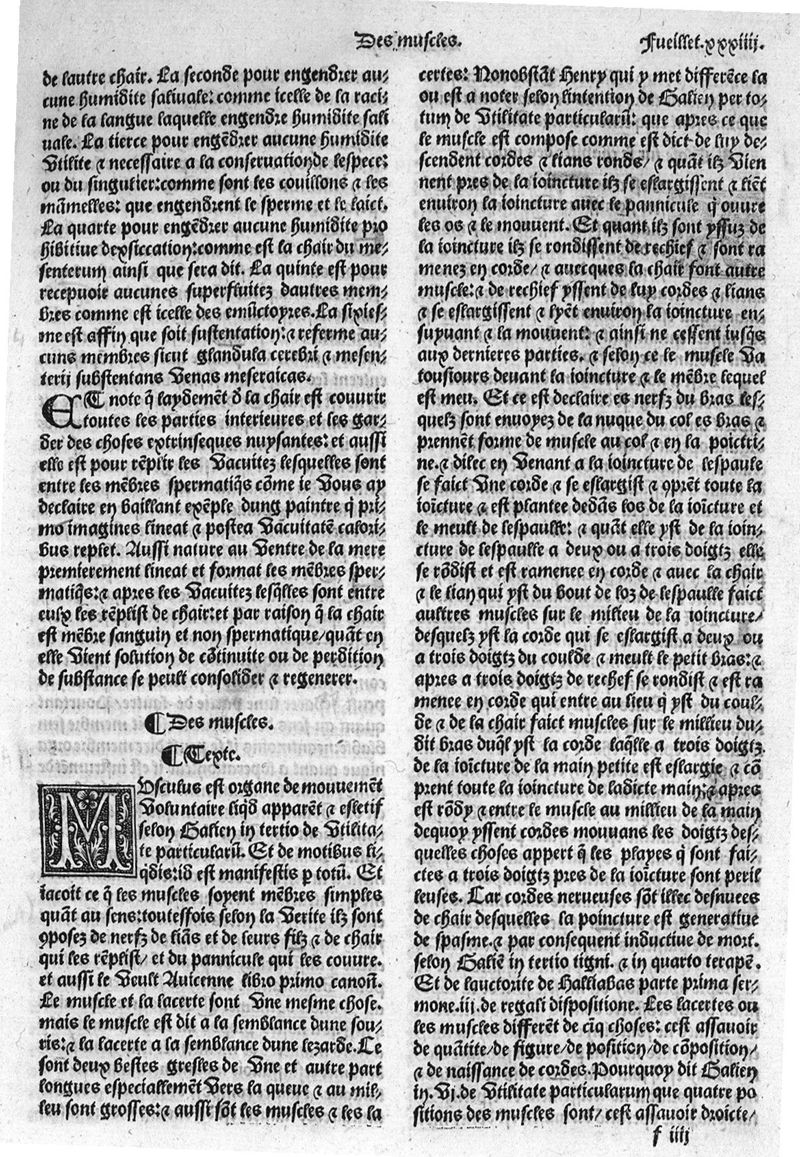 Des muscles.
Fueillet.xxxiiij.
de lautre chair. La seconde pour engendrer au-
cune humidite saliuale: comme icelle de la raci-
ne de la langue laquelle engendre humidite sali
uale. La tierce pour engēdrer aucune humidite
Vtilite ⁊ necessaire a la conseruationde lespece:
ou du singulier:comme sont les couillons ⁊ les
māmelles: que engendrent le sperme et le laict.
La quarte pour engēdrer aucune humidite pro
hibitiue dexsiccation:comme est la chair du me-
senterum ainsi que sera dit. La quinte est pour
recepuoir aucunes superfluitez dautres mem-
bres comme est icelle des emūctoyres. La sixies-
me est affin que soit sustentation:⁊ referme au-
cuns mēmbres sicut glandula cerebri ⁊ mesen-
terij substentans Venas meseraicas.
ET note q̄ laydement d̄ la chair est couurir
toutes les parties interieures et les gar-
der des choses extrinseques nuysantes: et aussi
elle est pour rēplir les Vacuitez lesquelles sont
entre les mēbres spermatiq̄s cōme ie Vous ay
declaire en baillant exēple dung paintre q̄ pri-
mo imagines lineat ⁊ postea Vacuitatē calori-
bus replet. Aussi nature au Ventre de la mere
premierement lineat et format les mēbres sper-
matiq̄s:⁊ apres les Vacuitez lesq̄lles sont entre
eulx les rēplist de chair:et par raison q̄ la chair
est mēbre sanguin et non spermatique/quāt en
elle Vient solution de cōtinuite ou de perdition
de substance se peult consolider ⁊ regenerer.
¶Des muscles.
¶Texte.
MOsculus est organe de mouuemēt
Voluntaire liqd apparēt ⁊ esletif
selon Galien in tertio de Vtilita-
te particularū. Et de motibus li-
qdis:id est manifestis p totū. Et
iacoit ce q̄ les muscles soyent mēbres simples
quāt au sens:toutesfois selon la Verite ilz sont
ꝯposez de nerfz de liās et de leurs filz ⁊ de chair
qui les rēplist/ et du pannicule qui les couure.
et aussi le Veult Auicenne libro primo canoīs.
Le muscle et la lacerte sont Vne mesme chose.
mais le muscle est dit a la semblance dune sou-
ris:⁊ la lacerte a la semblance dune lezarde. Ce
sont deux bestes gresles de Vne et autre part
longues especiallemēt Vers la queue ⁊ au mil-
leu sont grosses:⁊ aussi sōt les muscles ⁊ les la
certes: Nonobstāt Henry qui y met differēce la
ou est a noter selon lintention de Galien per to-
tum de Vtilitate particularū: que apres ce que
le muscle est compose comme est dict de luy de-
scendent cordes ⁊ lians ronds/ ⁊ quāt ilz Vien
nent pres de la ioincture ilz se eslargissent ⁊ liēt
enuiron la ioincture auec le pannicule q̄ ouure
les os ⁊ le mouuent. Et quant ilz sont yssuz de
la ioincture ilz se rondissent de rechief ⁊ sont ra
menez en corde/ ⁊ auecques la chair font autre
muscle:⁊ de rechief yssent de luy cordes ⁊ lians
⁊ se eslargissent ⁊ lyēt enuiron la ioincture en-
suyuant ⁊ la mouuent: ⁊ ainsi ne cessent iusq̄s
aux dernieres parties. ⁊ selon ce le muscle Va
tousiours deuant la ioincture ⁊ le mēbre lequel
est meu. Et ce est declaire es nerfz du bras les-
quelz sont enuoyez de la nuque du col es bras ⁊
prennēt forme de muscle au col ⁊ en la poictri-
ne.⁊ dilec en Venant a la ioincture de lespaule
se faict Vne corde ⁊ se eslargist ⁊ ꝯprēt toute la
ioīcture ⁊ est plantee dedās los de la ioīcture et
le meult de lespaulle: ⁊ quāt elle yst de la ioin-
cture de lespaulle a deux ou a trois doigtz elle
se rōdist et est ramenee en corde ⁊ auec la chair
⁊ le lian qui yst du bout de loz de lespaulle faict
aultres muscles sur le milieu de la ioincture/
desquelz yst la corde qui se eslargist a deux ou
a trois doigtz du coulde ⁊ meult le petit bras:⁊
apres a trois doigtz de rechef se rondist ⁊ est ra
menee en corde qui entre au lieu q̄ yst du coul-
de ⁊ de la chair faict muscles sur le millieu du-
dit bras duq̄l yst la corde laq̄lle a trois doigtz
de la ioīcture de la main petite est eslargie ⁊ cō
prent toute la ioincture de ladicte main:⁊ apres
est rōdy ⁊ entre le muscle au millieu de la main
dequoy yssent cordes mouuans les doigtz des-
quelles choses appert q̄ les playes q̄ sont fai-
ctes a trois doigtz pres de la ioīcture sont peril
leuses. Car cordes nerueuses sōt illec desnuees
de chair desquelles la poincture est generatiue
de spasme.⁊ par consequent inductiue de mort.
selon Galiē in tertio tigni. ⁊ in quarto terapē.
Et de lauctorite de Halliabas parte prima ser-
mone.iij.de regali dispositione. Les lacertes ou
les muscles differēt de cīq choses: cest assauoir
de quātite/de figure/de position/de cōposition/
⁊ de naissance de cordes.Pourquoy dit Galien
in.Vj.de Vtilitate particularum que quatre po
sitions des muscles sont/ cest assauoir droicte/
f iiij